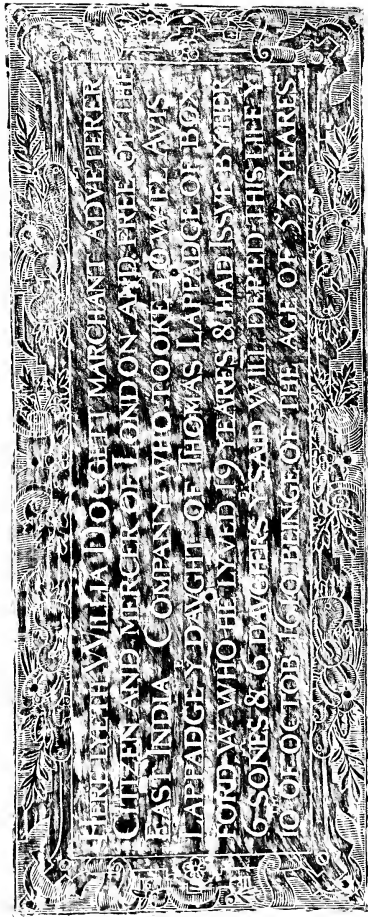 HERE LYETH WILLIĀ DOGGETT MARCHANT ADVETERER
CITIZEN AND MERCER OF LONDON AND FREE OF THE
EAST INDIA COMPANY WHO TOOKE TO WIFE AVIS
LAPPADGE Yᴱ DAVGHT OF THOMAS LAPPADGE OF BOX
FORD Wᵀᴴ WHO HE LYVED 19 YEARES & HAD ISSVE BY HER
6 SONES & 6 DAVGHERS Yᴱ SAID WILL DEPED THIS LIFE Yᴱ
10ᵀᴴ OF OCTOB 1610 BEINGE OF THE AGE OF 53 YEARES